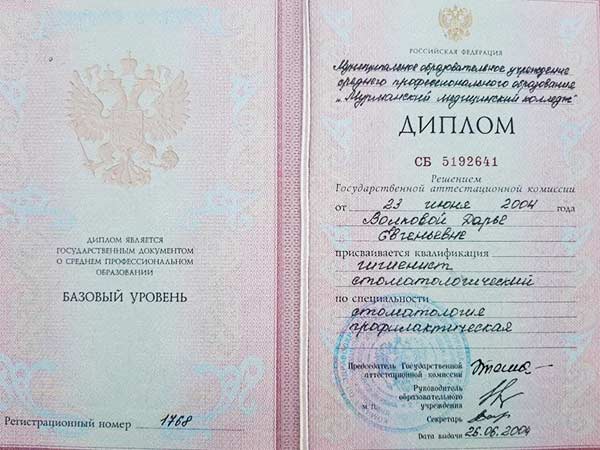 ДИПЛОМ ЯВЛЯЕТСЯ
ГОСУДАРСТВЕННЫМ ДОКУМЕНТОМ
О СРЕДНЕМ ПРОФЕССИОНАЛЬНОМ
ОБРАЗОВАНИИ
БАЗОВЫЙ УРОВЕНЬ
Регистрационный номер 1768
РОССИЙСКАЯ ФЕДЕРАЦИЯ
Муниципальное образовательное учреждение
среднего профессионального образования
"Мурманский медицинский колледж"
ДИПЛОМ
СБ 5192641
Решением
Государственной аттестационной комиссии
от 23 июня 2004 года
Волковой Дарье
Евгеньевне
присваивается квалификация
гигиенист
стоматологический
по специальности
стоматология
профилактическая
Председатель Государственной
аттестационной комиссии
Руководитель
образовательного
учреждения
Секретарь
М.П.
Дата выдачи 26.06.2004